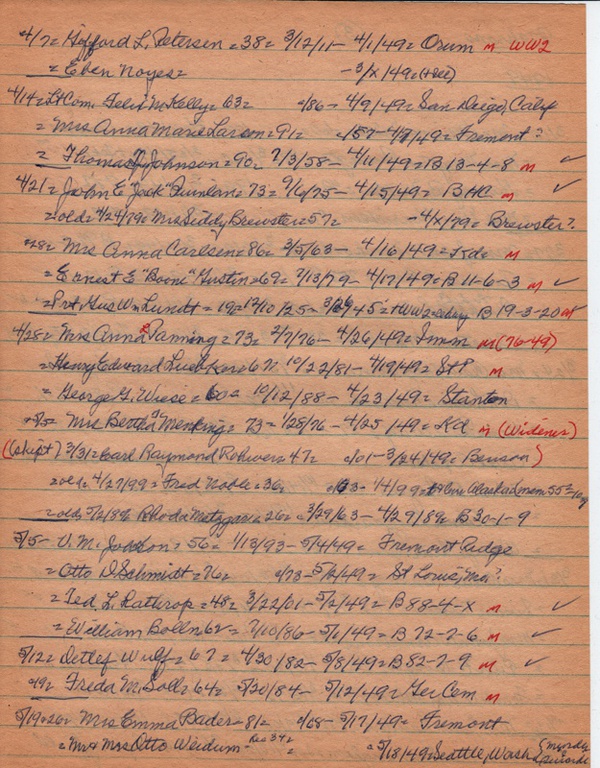 4/7= Gifford L. Petersen = 38= 3/12/11- 4/1/49= Orum m WW2
= Eben Noyes= -3/x/49=(+Del)
4/14= Lt Com. Felix M. Kelly= 63= c/86- 4/9/49= San Diego, Calif
= Mrs Anna Marie Larson= 91= c/57- 4/9/49= Fremont?
= Thomas J Johnson= 90= 7/3/58- 4/11/49= B 13-4-8 m ✓
4/21= John E "Jack" Quinlan= 73= 9/6/75- 4/15/49= BHC m ✓
=old= 4/24/79= Mrs Siddy Brewster= 57= -4/x/79= Brewster?
4/28= Mrs Anna Carlsen= 86= 3/5/63- 4/16/49= Kd= m
= Ernest E "Boone" Gustin= 69= 7/13/79- 4/17/49= B 11-6-3 m ✓
= Pvt Gus Wm Lundt= 19= 12/10/25- 3/29/45= +WW2= B 19-3-20 m
4/28= Mrs Anna Panning= 73= 2/7/76- 4/26/49= Imm m (76-49)
= Henry Edward Luebker= 67= 10/22/81- 4/19/49= StP m
= George G. Wiese= 60= 10/12/88- 4/23/49= Stanton
= Mrs Bertha Menking= 73= 1/28/76- 4/25/49= Kd m (Widener)
(skipt) 3/31= Carl Raymond Rohwer= 47= c/01- 3/24/49= Benson)
=old= 4/27/99= Fred Noble= 36= c/63- 1/4/99=
=old= 5/2/89= Rhoda Metzgar= 26= 3/29/63- 4/29/89= B 30-1-9
5/5- V. M. Jackson= 56= 1/13/93- 5/4/49= Fremont Ridge
= Otto D Schmidt= 76= c/73- 5/2/49= St Louis, Mo?
= Ted. L. Lathrop= 48= 3/22/01- 5/2/49= B 88-4-x m ✓
= William Bolln= 62= 7/10/86- 5/1/49= B 72-7-6 m ✓
5/12= Detlef Wulf= 67= 4/30/82- 5/8/49= B 82-7-9 m ✓
= Freda M. Soll= 64= 5/30/84- 5/12/49= Ger Cem m
5/19+26= Mrs Emma Bader= 81= c/68- 5/17/49= Fremont
= Mr & Mrs Otto Weidum- Res 34?= = 5/18/49= Seattle, Wash (murder & suicide